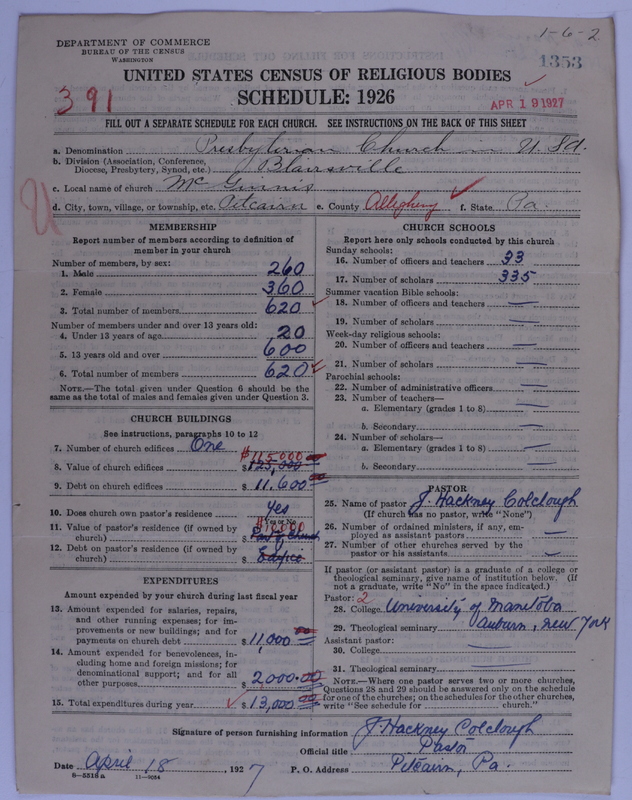 1-6-2
DEPARTMENT OF COMMERCE
BUREAU OF THE CENSUS
WASHINGTON
1353
UNITED STATES CENSUS OF RELIGIOUS BODIES
SCHEDULE: 1926
391
APR 19 1927
FILL OUT A SEPARATE SCHEDULE FOR EACH CHURCH. SEE INSTRUCTIONS ON THE BACK OF THIS SHEET
a. Denomination Presbyterian Church in U.S.A.
b. Division (Association, Conference, Diocese, Presbytery, Synod, etc.) Blairsville
c. Local name of church McGinnis
d. City, town, village, or township, etc. Pitcairn e. County Allegheny f. State Pa.
MEMBERSHIP
Report number of members according to definition of member in your church
Number of members, by sex:
1. Male 260
2. Female 360
3. Total number of members 620
Number of members under and over 13 years old:
4. Under 13 years of age 20
5. 13 years old and over 600
6. Total number of members 620
NOTE.—The total given under Question 6 should be the same as the total of males and females given under Question 3.
CHURCH BUILDINGS
See instructions, paragraphs 10 to 12
7. Number of church edifices One
$115,000 00
8. Value of church edifices $ 125,000
9. Debt on church edifices $ 11,600 00
10. Does church own pastor's residence? yes
Yes or No
$10,000
11. Value of pastor's residence (if owned by church) $ Part of Church
12. Debt on pastor's residence (if owned by church) $ Edifice
EXPENDITURES
Amount expended by your church during last fiscal year
13. Amount expended for salaries, repairs, and other running expenses; for improvements or new buildings; and for payments on church debt $ 11,000 00
14. Amount expended for benevolences, including home and foreign missions; for denominational support; and for all other purposes $ 2,000.00
15. Total expenditures during year $ 13,000 00
CHURCH SCHOOLS
Report here only schools conducted by this church
Sunday schools:
16. Number of officers and teachers 33
17. Number of scholars 335
Summer vacation Bible schools:
18. Number of officers and teachers —
19. Number of scholars —
Week-day religious schools:
20. Number of officers and teachers —
21. Number of scholars —
Parochial schools:
22. Number of administrative officers —
23. Number of teachers—
a. Elementary (grades 1 to 8) —
b. Secondary —
24. Number of scholars—
a. Elementary (grades 1 to 8) —
b. Secondary —
PASTOR
25. Name of pastor J. Hackney Colclough
(If church has no pastor, write "None")
26. Number of ordained ministers, if any, employed as assistant pastors —
27. Number of other churches served by the pastor or his assistants —
If pastor (or assistant pastor) is a graduate of a college or theological seminary, give name of institution below. (If not a graduate, write "No" in the space indicated.)
Pastor: 2
28. College University of Manitoba
29. Theological seminary Auburn, New York
Assistant pastor:
30. College —
31. Theological seminary —
NOTE.—Where one pastor serves two or more churches, Questions 28 and 29 should be answered only on the schedule for one of the churches; on the schedules for the other churches, write "See schedule for church."
Signature of person furnishing information J. Hackney Colclough
Official title Pastor
Date April 18, 1927 P. O. Address Pitcairn, Pa.
8—5518a 11—9034